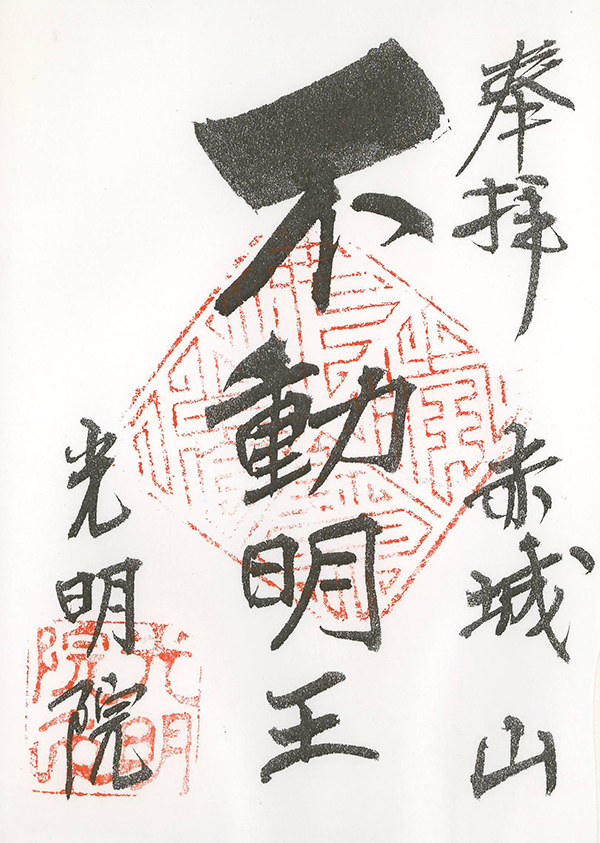 奉拝
赤城山
不動明王
光明院
光明
院印